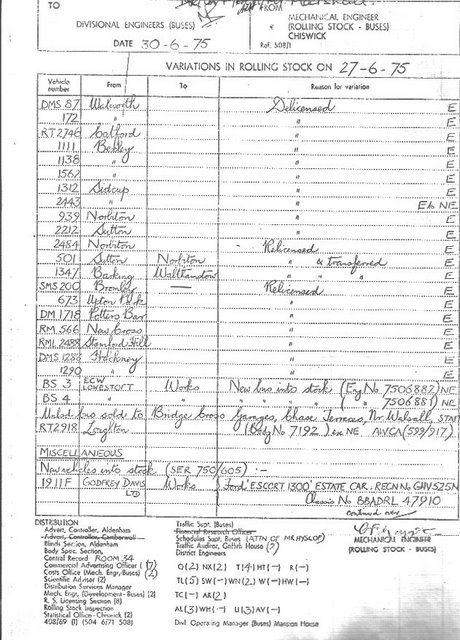 TO
FROM
DIVISIONAL ENGINEERS (BUSES)
MECHANICAL ENGINEER
(ROLLING STOCK - BUSES)
CHISWICK
DATE 30-6-75
Ref. 508/1
VARIATIONS IN ROLLING STOCK ON 27-6-75
Vehicle number From To Reason for variation
DMS 87 Walworth Delicensed E
172 " " E
RT 2746 Catford " E
1111 Bexley " E
1138 " " E
1562 " " E
1312 Sidcup " E
2443 " " E NE
939 Norbiton " E
2212 Sutton " E
2484 Norbiton Relicensed E
501 Sutton Norbiton " & transferred E
1347 Barking Walthamstow " " " E
SMS 200 Bromley — Relicensed E
673 Upton Park " E
DM 1718 Potters Bar " E
RM 566 New Cross " E
RML 2488 Stamford Hill " E
DMS 1286 Hackney " E
1290 " " E
BS 3 ECW LOWESTOFT Works New bus into stock (Eng No 7506882) NE
BS 4 " " " " " ( " 7506881) NE
bus sold to Bridge Cross Garages, Chase Terrace, Nr. Walsall, STAFF
RT2918 Loughton (Body No 7192) ex NE AWCA (599/917)
MISCELLANEOUS
New vehicles into stock (SER 750/605) :-
1911F GODFREY DAVIS LTD Works Ford 'ESCORT 1300' ESTATE CAR. REGN No GHV525N
Chassis No BBADRL 47910
continued over
DISTRIBUTION
Advert. Controller, Aldenham
Advert. Controller, Camberwell
Blinds Section, Aldenham
Body Spec. Section,
Central Record ROOM 34
Commercial Advertising Officer (7)
Costs Office (Mech. Engr. Buses) (2)
Scientific Adviser (2)
Distribution Services Manager
Mech. Engr. (Development - Buses) (2)
R. S. Licensing Section (8)
Rolling Stock Inspection
Statistical Office - Chiswick (2)
408/69 (1) (504 6/71 508)
Traffic Supt. (Buses)
Financial Research Officer
Schedules Supt. Buses (ATTN OF MR HYSLOP)
Traffic Auditor, Griffith House (2)
District Engineers
Q(2) NX(2) T(4) HT(-) R(-)
TL(5) SW(-) WN(2) W(-) HW(-)
TC(-) AR(2)
AL(3) WH(-) U(3) AV(-)
Divl. Operating Manager (Buses) Mansion House
MECHANICAL ENGINEER
(ROLLING STOCK - BUSES)